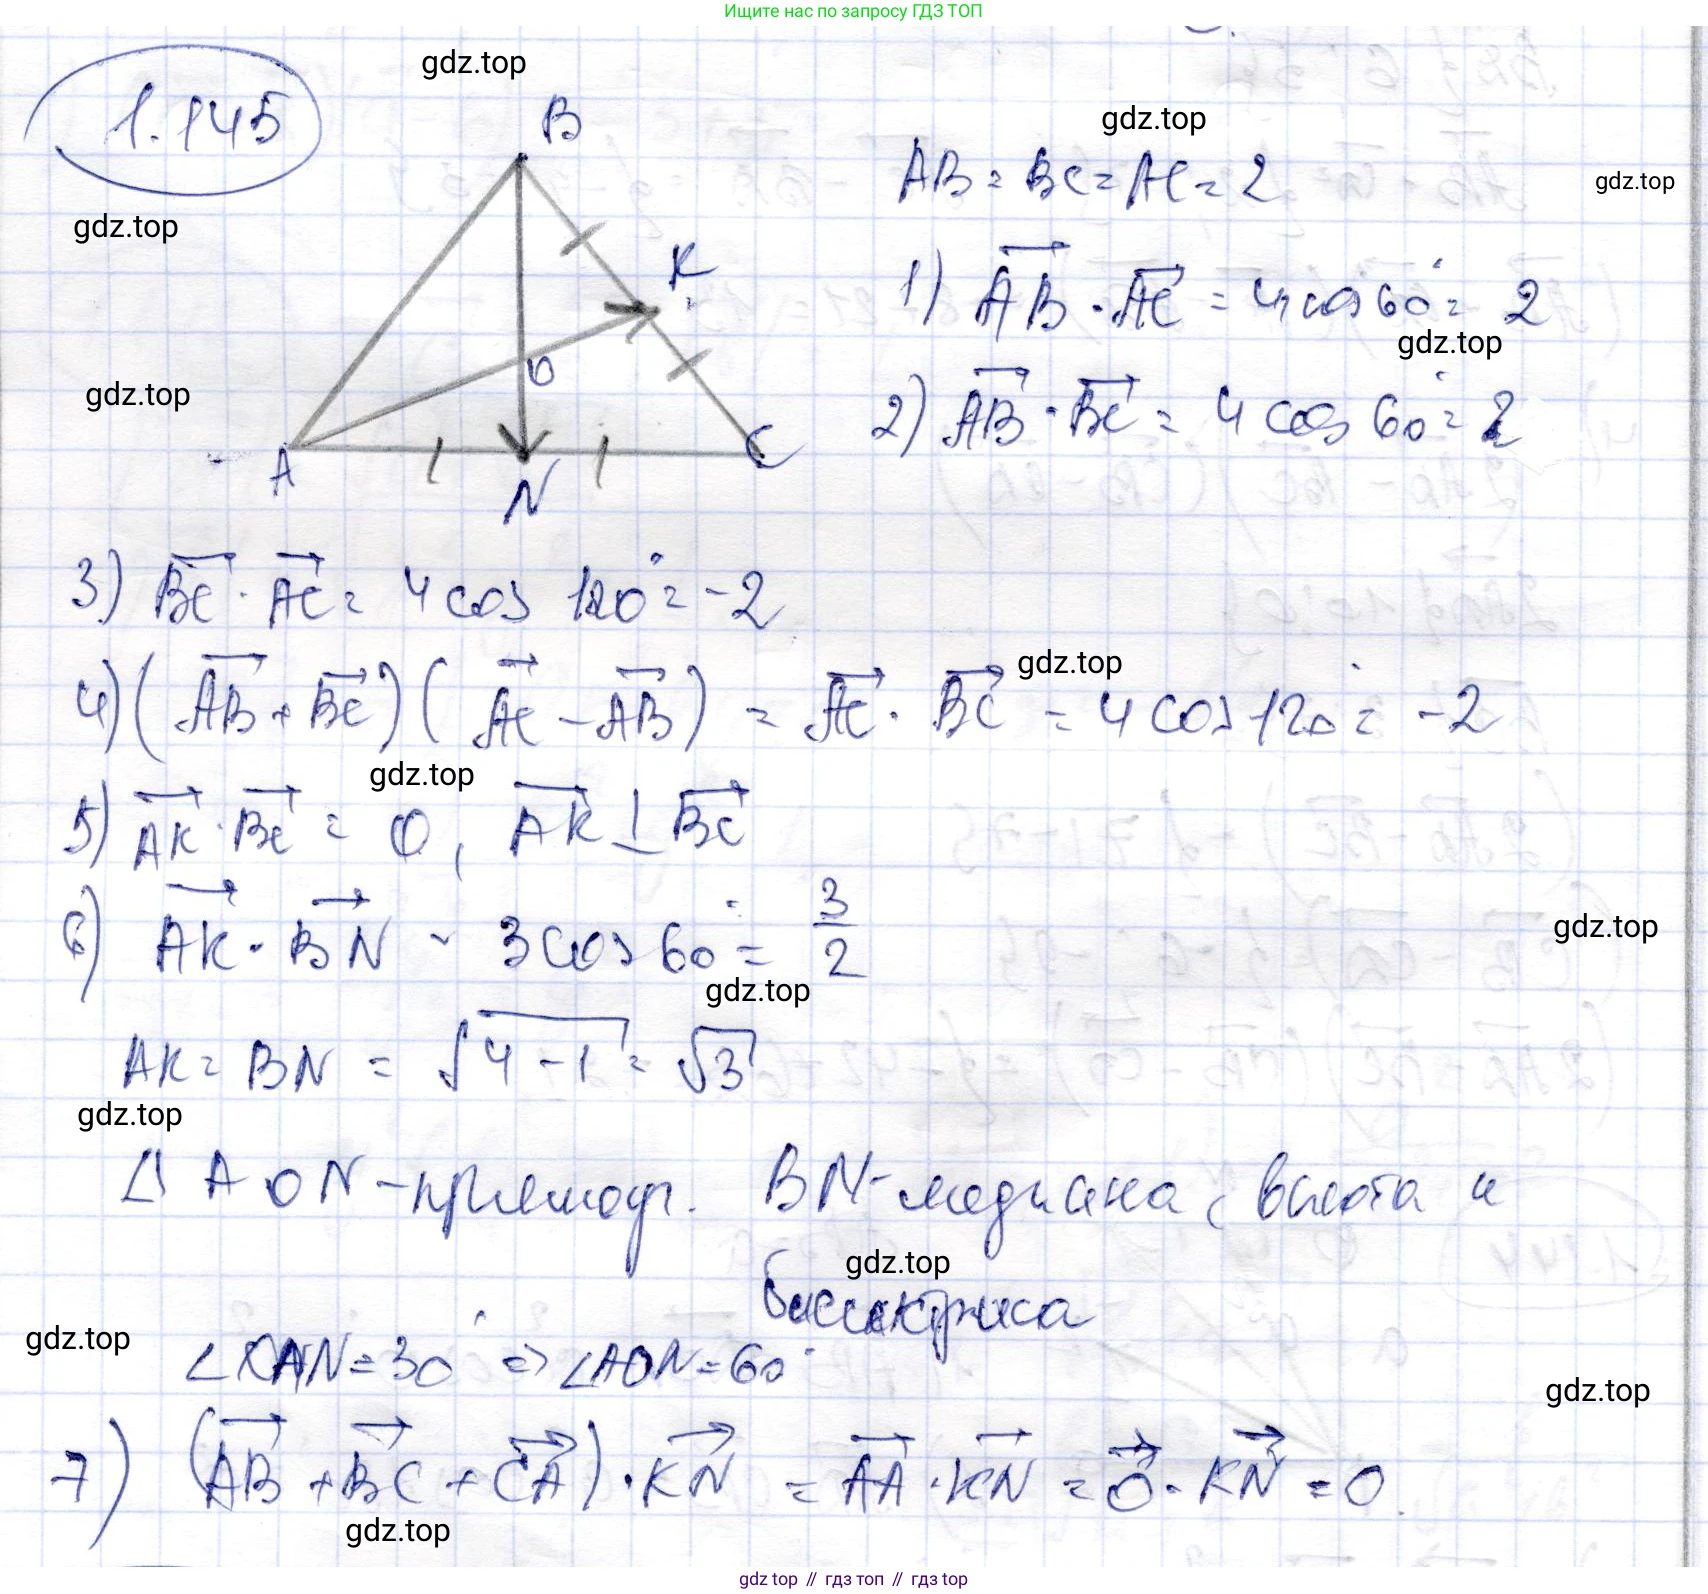 Ищите нас по запросу ГДЗ ТОП
1.145
gdz.top
B
gdz.top
AB = BC = AC = 2
gdz.top
gdz.top
K
1) AB · AC = 4 cos 60° = 2
gdz.top
O
gdz.top
2) AB · BC = 4 cos 60° = 2
A
N
C
3) BC · AC = 4 cos 120° = -2
gdz.top
4) (AB + BC)(AC - AB) = AC · BC = 4 cos 120° = -2
gdz.top
5) AK · BC = 0, AK ⊥ BC
6) AK · BN = 3 cos 60° = 3/2
gdz.top
gdz.top
AK = BN = √4 - 1 = √3
gdz.top
Δ AON - прямоуг. BN - медиана, высота и
gdz.top
биссектриса
gdz.top
∠OAN = 30° ⇒ ∠AON = 60°
gdz.top
7) (AB + BC + CA) · KN = AA · KN = 0 · KN = 0
gdz.top
gdz top // гдз топ // гдз top